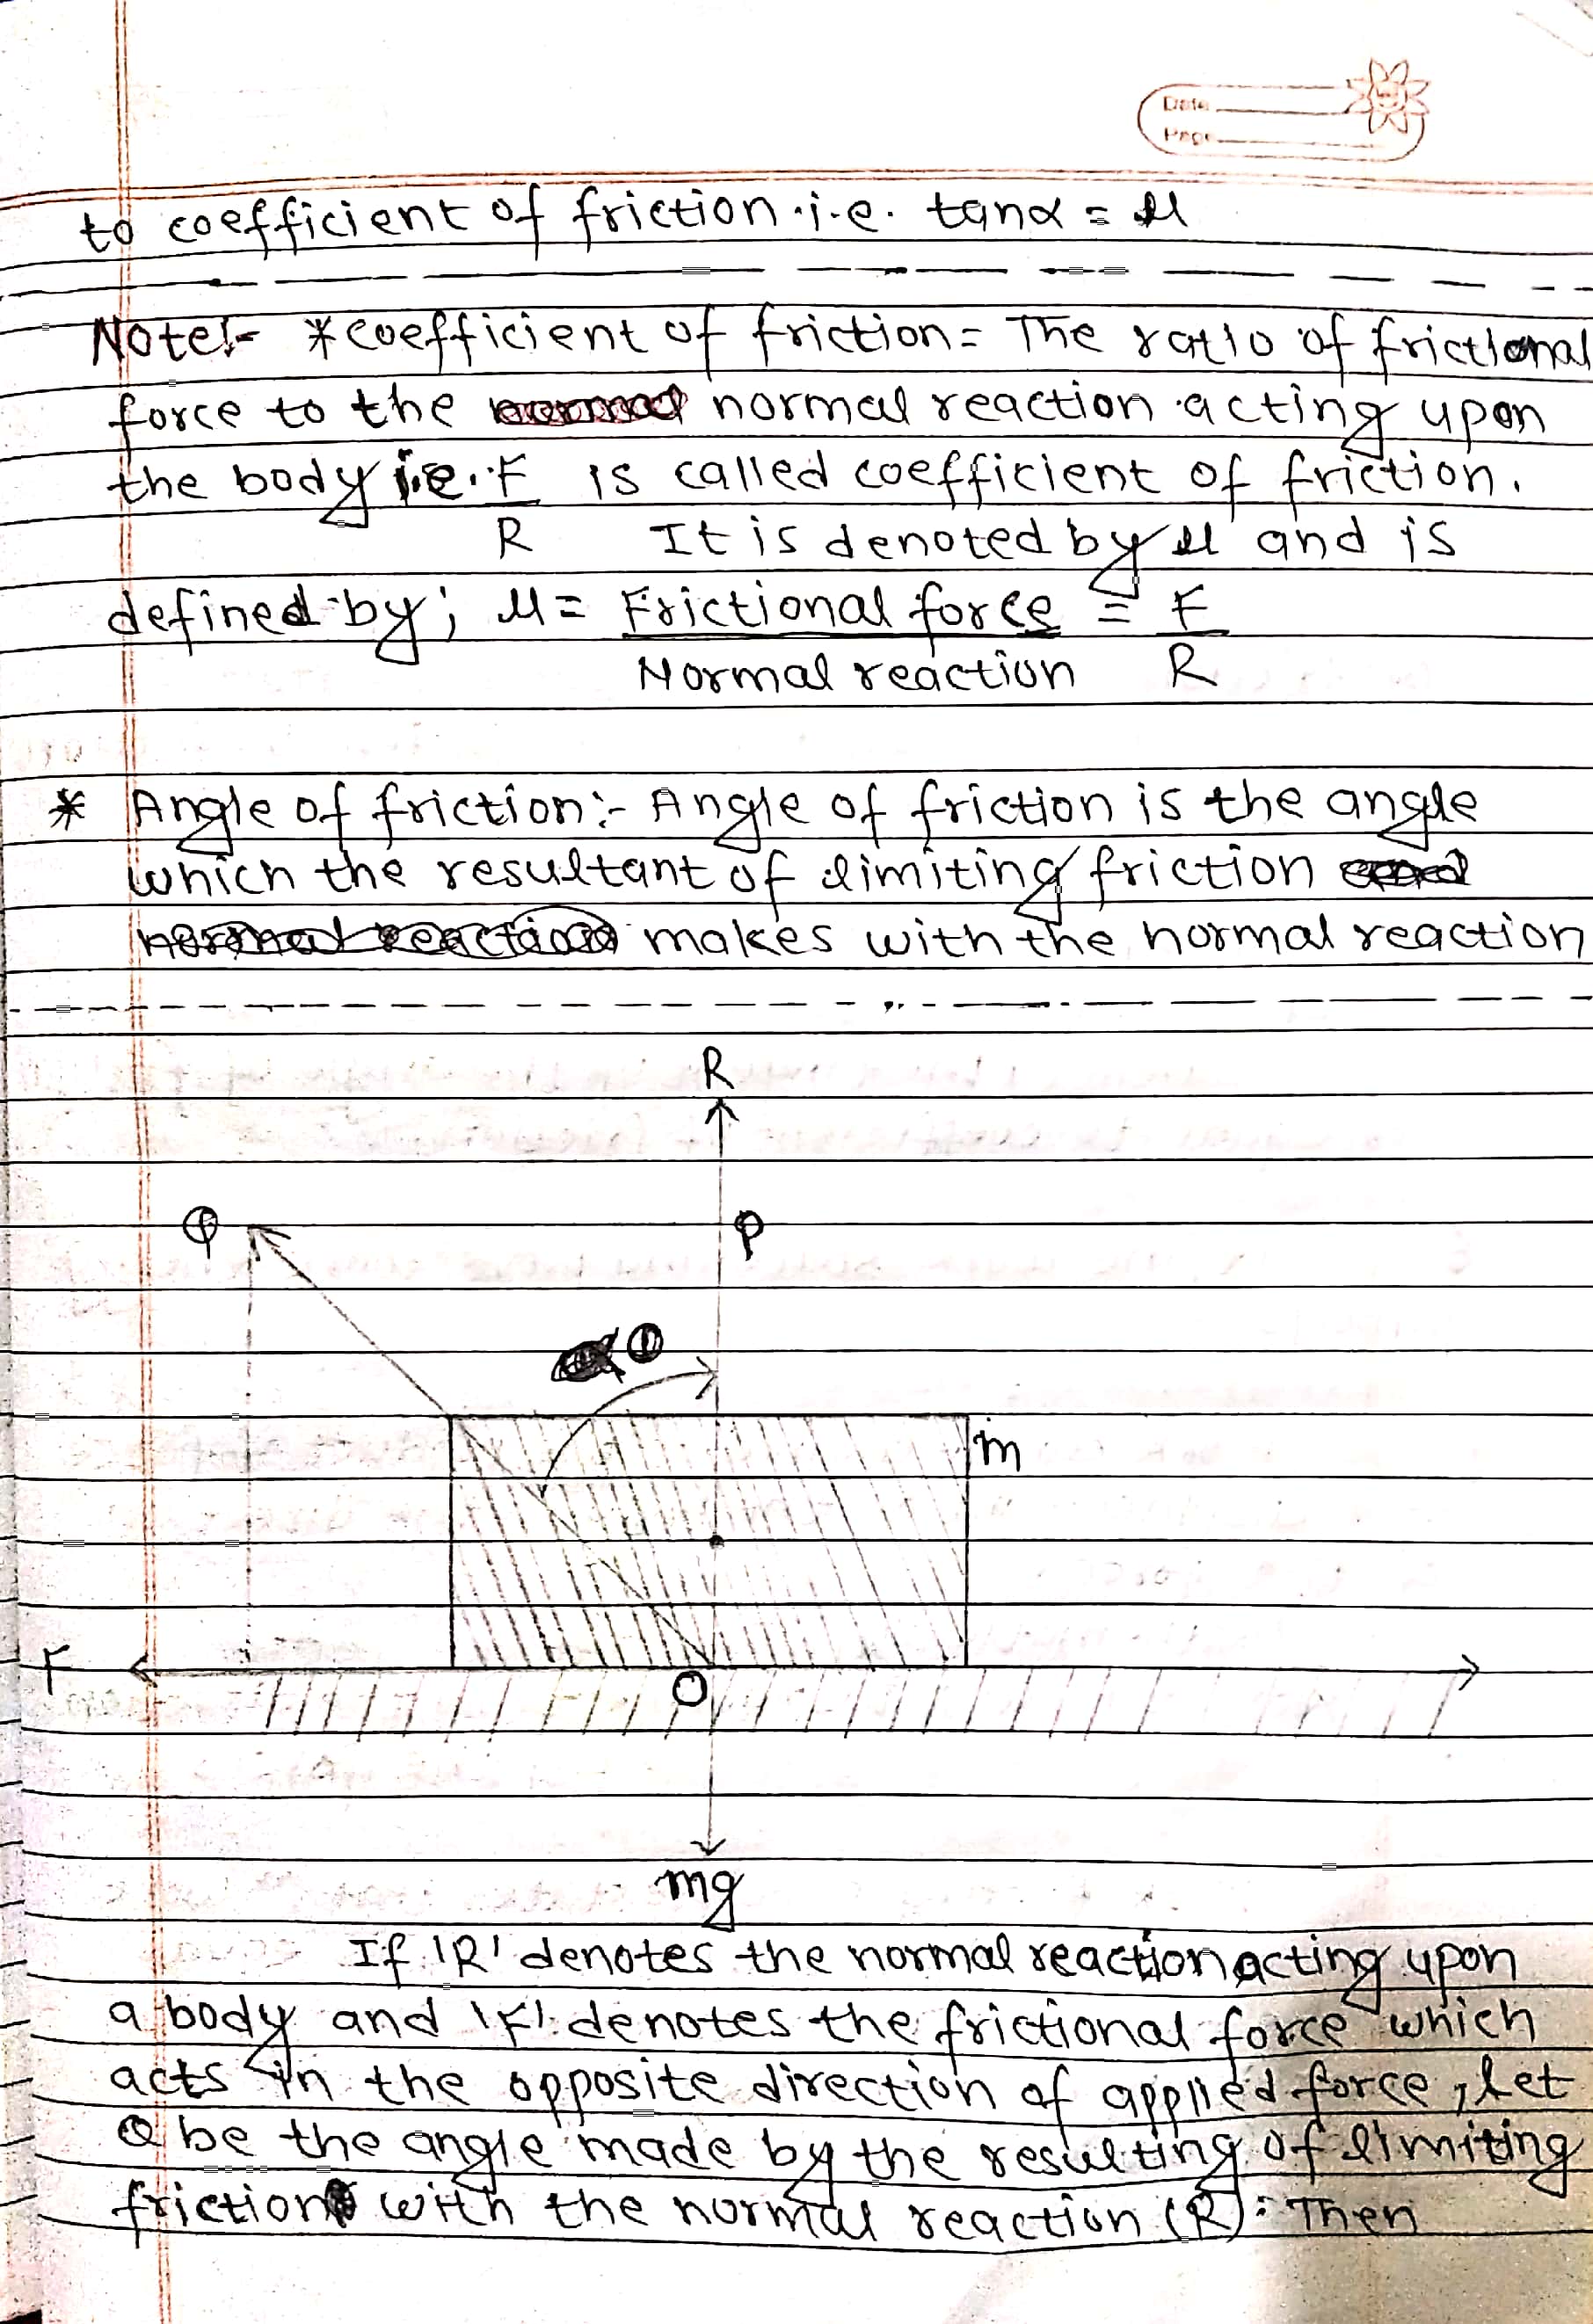 Date
Page
to coefficient of friction i.e. tanα = μ
Note:- *coefficient of friction = The ratio of frictional
force to the normal reaction acting upon
the body i.e. F is called coefficient of friction.
R It is denoted by μ and is
defined by; μ = Frictional force = F
Normal reaction R
* Angle of friction:- Angle of friction is the angle
which the resultant of limiting friction
makes with the normal reaction
R
Q P
θ
m
F
O
mg
If 'R' denotes the normal reaction acting upon
a body and 'F' denotes the frictional force which
acts in the opposite direction of applied force, Let
θ be the angle made by the resulting of limiting
friction with the normal reaction (R). Then